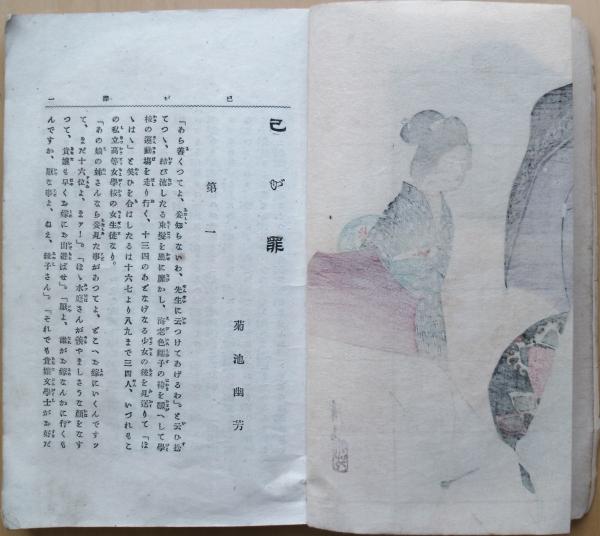 己が罪 一
己が罪
菊池幽芳
第一
「あら善くつてよ、妾知らないわ、先生に云つけてあげるわ」。と云ひ捨
てつゝ、結び流したる束髪を風に靡かし、海老色繻子の袴を飜へして學
校の運動場を走り行く、十三四のあどなげなる少女の後を見送りて「ほ
ゝほゝ」と笑ひを合はしたるは十六七より八九まで三四人、いづれもこ
の私立高等女學校の女生徒なり。
「あの娘の姉さんなら妾見た事があつてよ、どこへお嫁にいくんですツ
て、まだ十六位よ、まァー」。「ほゝ水庭さんが羨やましさうな顔をなす
つて、貴嬢も早くお嫁にお出遊ばせ」。「厭よ、誰がお嫁なんかに行くも
んですか、厭な事よ、ねえ、緑子さん」。「それでも貴嬢文學士がお好だ